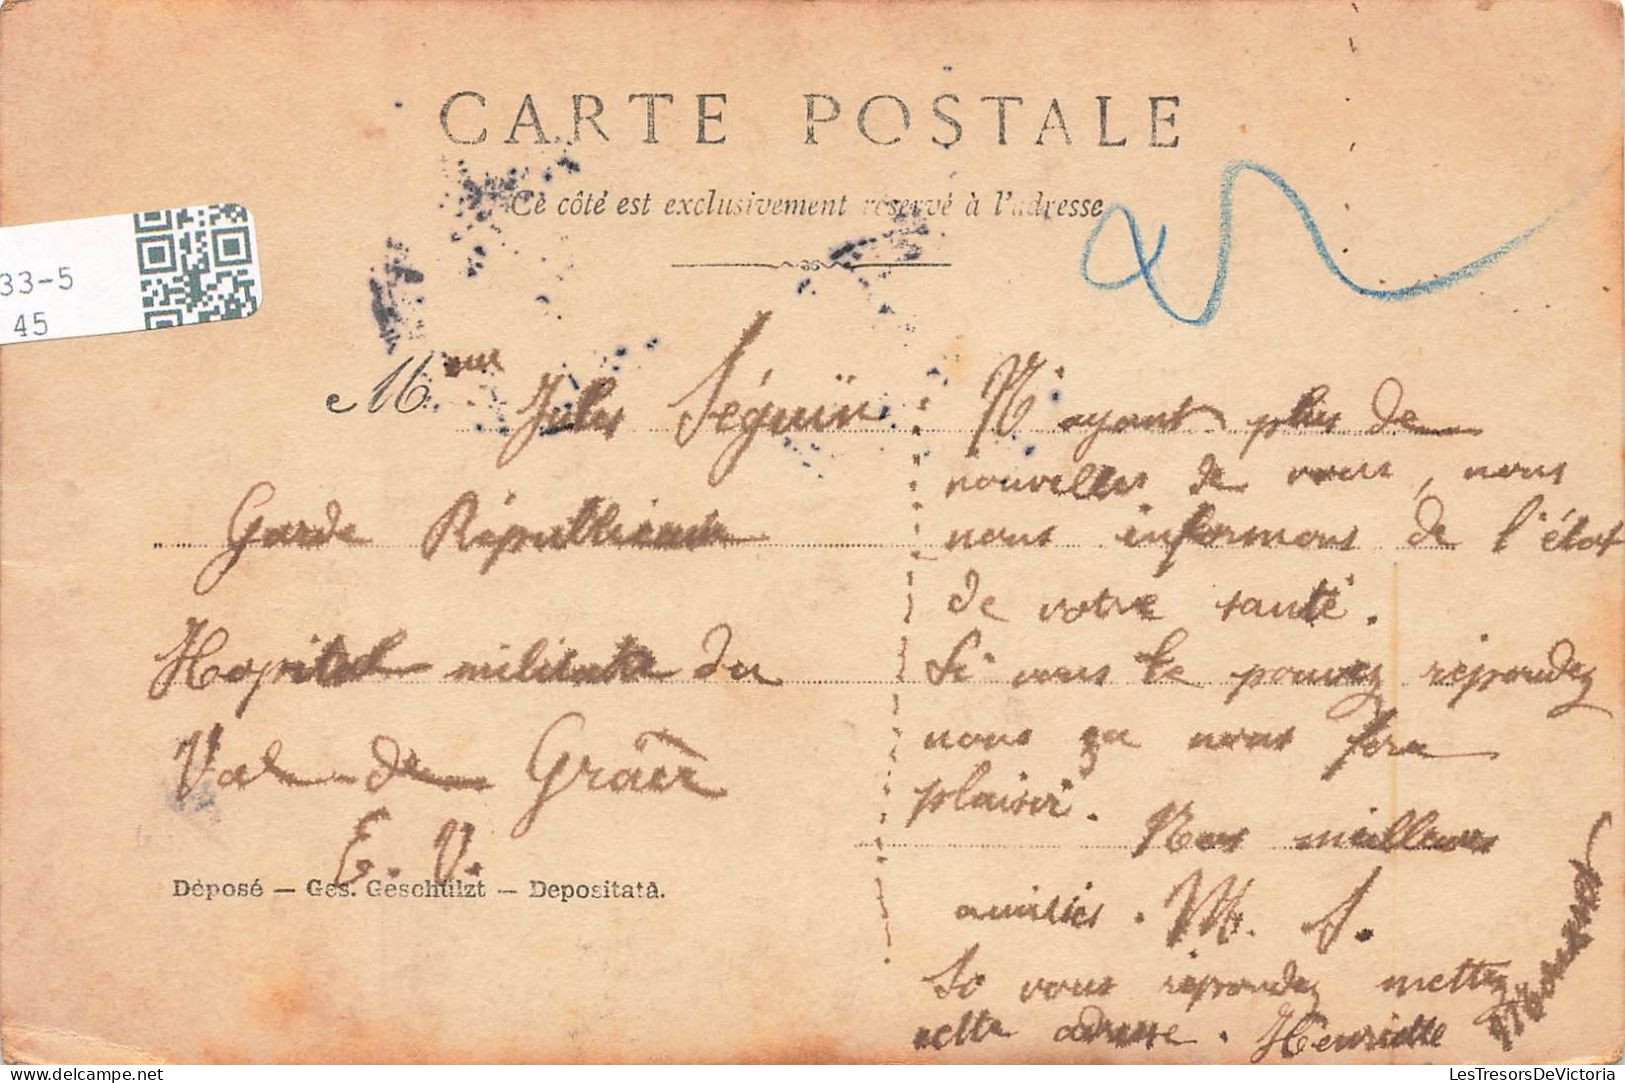 CARTE POSTALE
Ce côté est exclusivement réservé à l'adresse
33-5
45
Mєur Jules Séguin
Garde Républicain
Hopital militaire du
Val de Grâce
E. V.
Déposé — Ges. Geschützt — Depositatà.
N'ayant plus de
nouvelles de vous, nous
nous informons de l'état
de votre santé.
Si vous le pouvez répondez
nous ça nous fera
plaisir. Nos meilleures
amitiés. M. S.
Si vous répondez mettez
cette adresse. Henriette
LesTresorsDeVictoria